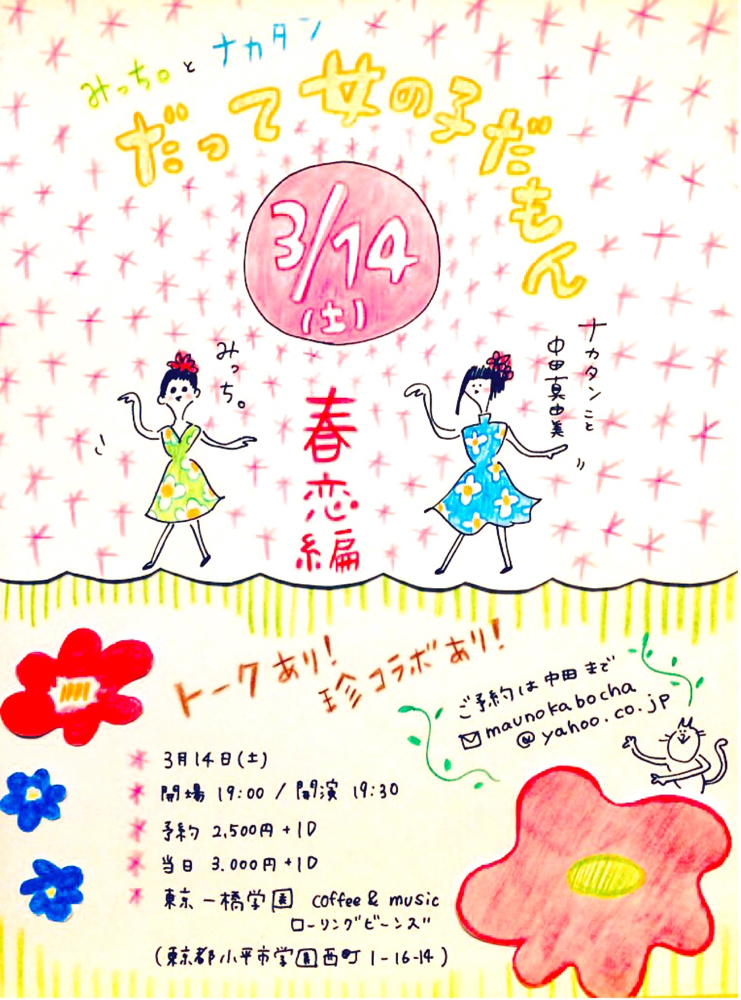 みっち。と ナカタン
だって女の子だもん
3/14
(土)
みっち。
ナカタンこと
中田真由美
春恋編
トークあり!
珍コラボあり!
ご予約は中田まで
maunokabocha
@yahoo.co.jp
* 3月14日(土)
* 開場 19:00 / 開演 19:30
* 予約 2,500円+1D
* 当日 3.000円+1D
* 東京 一橋学園 coffee & music
ローリングビーンズ
(東京都小平市学園西町1-16-14)